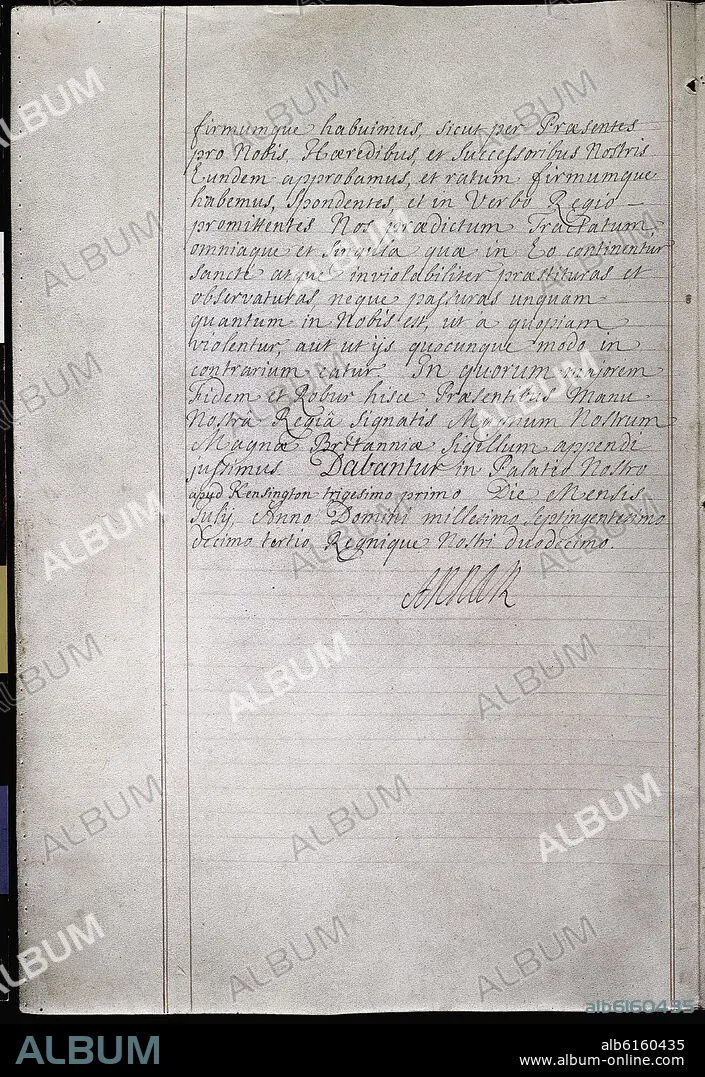 firmumque habuimus, sicut per Præsentes
pro Nobis, Hæredibus, et Successoribus Nostris
Eundem approbamus, et ratum firmumque
habemus, Spondentes et in Verbo Regio –
promittentes Nos prædictum Tractatum,
omniaque et Singula quæ in Eo continentur
sancte atque inviolabiliter præstituras et
observaturas, neque passuras unquam
quantum in Nobis est, ut a quopiam
violentur, aut ut ijs quocunque modo in
contrarium eatur. In quorum majorem
Fidem et Robur hisce Præsentibus Manu
Nostrâ Regiâ Signatis Magnum Nostrum
Magnæ Britanniæ Sigillum appendi
jussimus Dabantur in Palatio Nostro
apud Kensington trigesimo primo Die Mensis
Julij, Anno Domini millesimo septingentesimo
decimo tertio, Regnique Nostri duodecimo.
Anna R
ALBUM
alb6160435
ALBUM
alb6160435
www.album-online.com